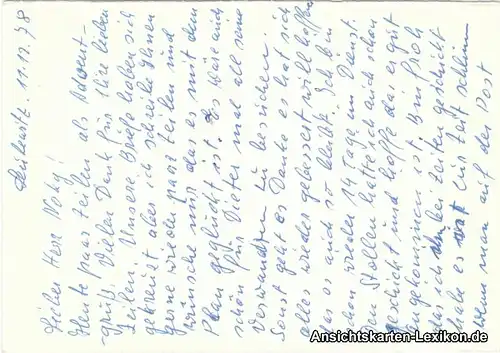 Zeulenroda. 11.12.78
Lieber Herr Nohy!
Heute paar Zeilen als Advent-
gruß. Vielen Dank für Ihre lieben
Zeilen. Unsere Briefe haben sich
gekreuzt aber ich schreibe Ihnen
gerne wieder paar Zeilen und
wünsche nur das es mit dem
Plan geglückt ist. Es wäre auch
schön für Dieter mal all seine
Verwandten zu besuchen.
Sonst geht es Danke es hat sich
alles wieder gebessert will hoffen
das es auch so bleibt. Ich bin
schon wieder 14 Tage im Dienst.
Den Stollen hatte ich auch schon
geschickt und hoffe das er gut
angekommen ist. Bin froh
das ich bei Zeiten geschickt
habe es ist zur Zeit schlimm
wenn man auf der Post
Ansichtskarten-Lexikon.de